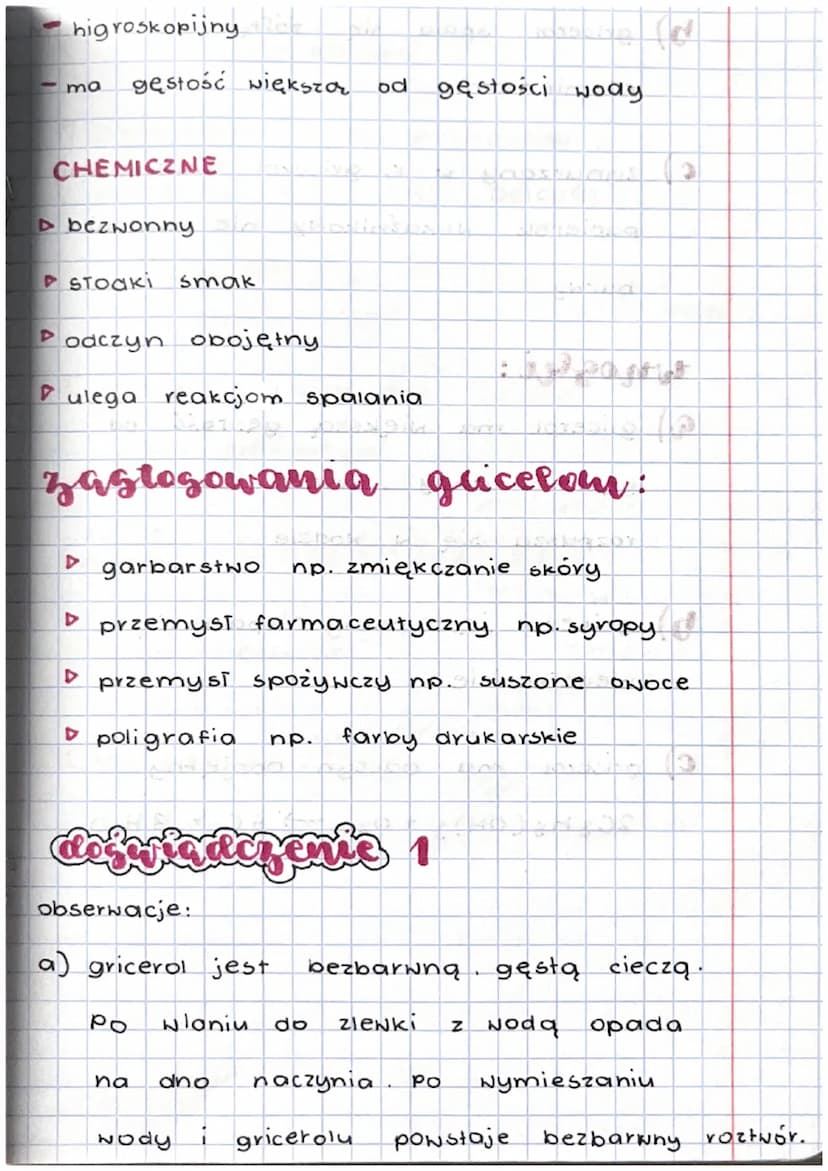 - higroskopijny
- ma gęstość większą od gęstości wody
CHEMICZNE
▷ bezwonny
▷ słodki smak
▷ odczyn obojętny
▷ ulega reakcjom spalania
zastosowania glicerolu:
▷ garbarstwo np. zmiękczanie skóry
▷ przemysł farmaceutyczny np. syropy
▷ przemysł spożywczy np. suszone owoce
▷ poligrafia np. farby drukarskie
doświadczenie 1
obserwacje:
a) gricerol jest bezbarwną, gęstą cieczą.
Po wlaniu do zlewki z wodą opada
na dno naczynia. Po wymieszaniu
wody i gricerolu powstaje bezbarwny roztwór.